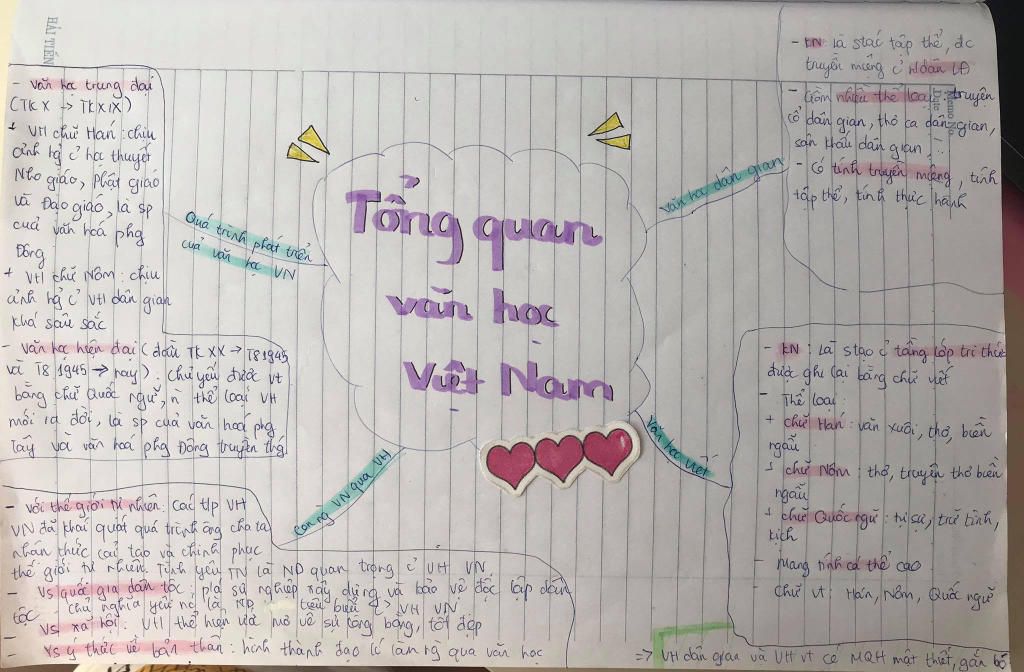 HẢI TIẾN
Memo No.
Date
Tổng quan
văn học
Việt Nam
Văn học dân gian
- KN: là stác tập thể, đc
truyền miệng củ Ndân LĐ
- Gồm nhiều thể loại: truyện
cổ dân gian, thơ ca dân gian,
sân khấu dân gian, ...
- Có tính truyền miệng, tính
tập thể, tính thực hành
Văn học viết
- KN: Là stạo củ tầng lớp tri thức
được ghi lại bằng chữ viết
- Thể loại:
+ chữ Hán: văn xuôi, thơ, biền
ngẫu
+ chữ Nôm: thơ, truyện thơ biền
ngẫu
+ chữ Quốc ngữ: tự sự, trữ tình,
kịch
- Mang tính cá thể cao
- Chữ vt: Hán, Nôm, Quốc ngữ
Quá trình phát triển
của văn học VN
- Văn học trung đại
(TK X → TK XIX)
+ VH chữ Hán: chịu
ảnh hg củ học thuyết
Nho giáo, Phật giáo
và Đạo giáo, là sp
cuả văn hoá phg
Đông
+ VH chữ Nôm: chịu
ảnh hg củ VH dân gian
khá sâu sắc
- Văn học hiện đại (đầu TK XX → T8 1945
và T8 1945 → nay): Chủ yếu được vt
bằng chữ Quốc ngữ, n thể loại VH
mới ra đời, là sp của văn hoá phg
Tây và văn hoá phg Đông truyền thg
Con ng VN qua VH
- Với thế giới tự nhiên: Các tlp VH
VN đã khái quát quá trình ông cha ta
nhận thức cải tạo và chinh phục
thế giới tự nhiên. Tình yêu TN là ND quan trọng củ VH VN
- Vs quốc gia dân tộc: p/a sự nghiệp xây dựng và bảo vệ độc lập dân
tộc. Chủ nghĩa yêu nc là ND tiêu biểu VH VN
- Vs xã hội: VH thể hiện ước mơ về sự công bằng, tốt đẹp
- Vs ý thức về bản thân: hình thành đạo lí làm ng qua văn học
=> VH dân gian và VH vt có MQH mật thiết, gắn bó